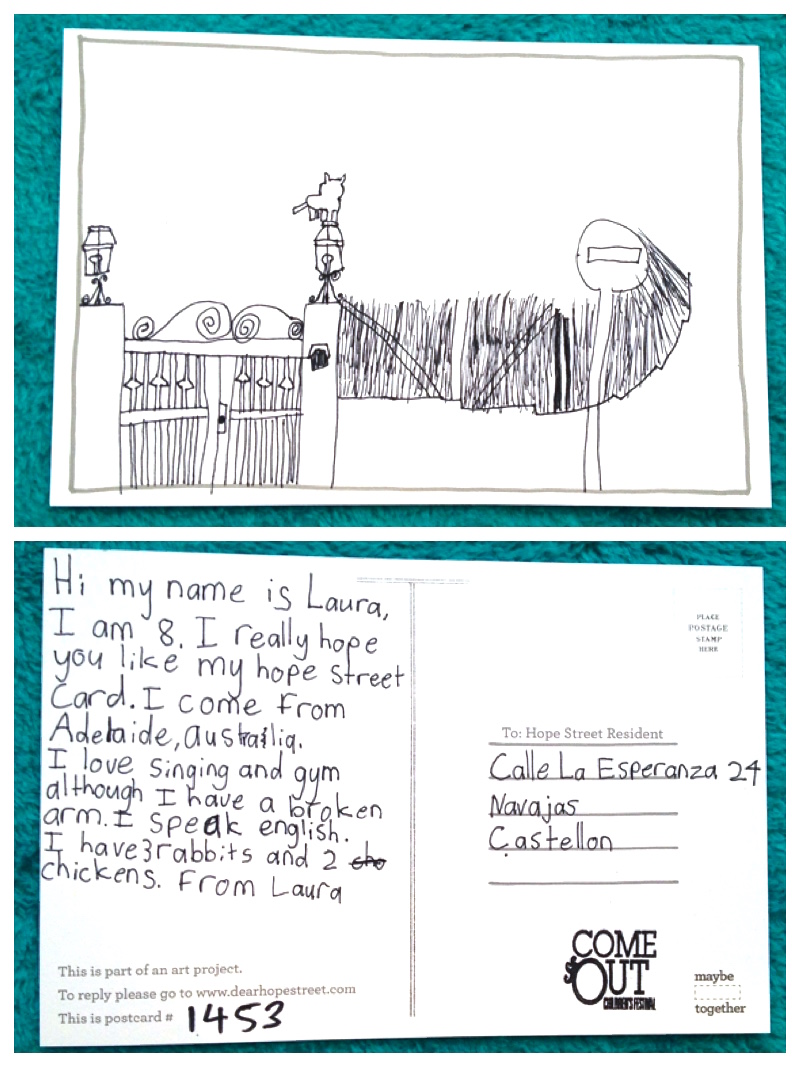 Hi my name is Laura,
I am 8. I really hope
you like my hope street
Card. I come From
Adelaide, austrailia.
I love singing and gym
although I have a broken
arm. I speak english.
I have 3 rabbits and 2 cho
chickens. From Laura
This is part of an art project.
To reply please go to www.dearhopestreet.com
This is postcard # 1453
PLACE
POSTAGE
STAMP
HERE
To: Hope Street Resident
Calle La Esperanza 24
Navajas
Castellon
COME
OUT
CHILDREN'S FESTIVAL
maybe
together